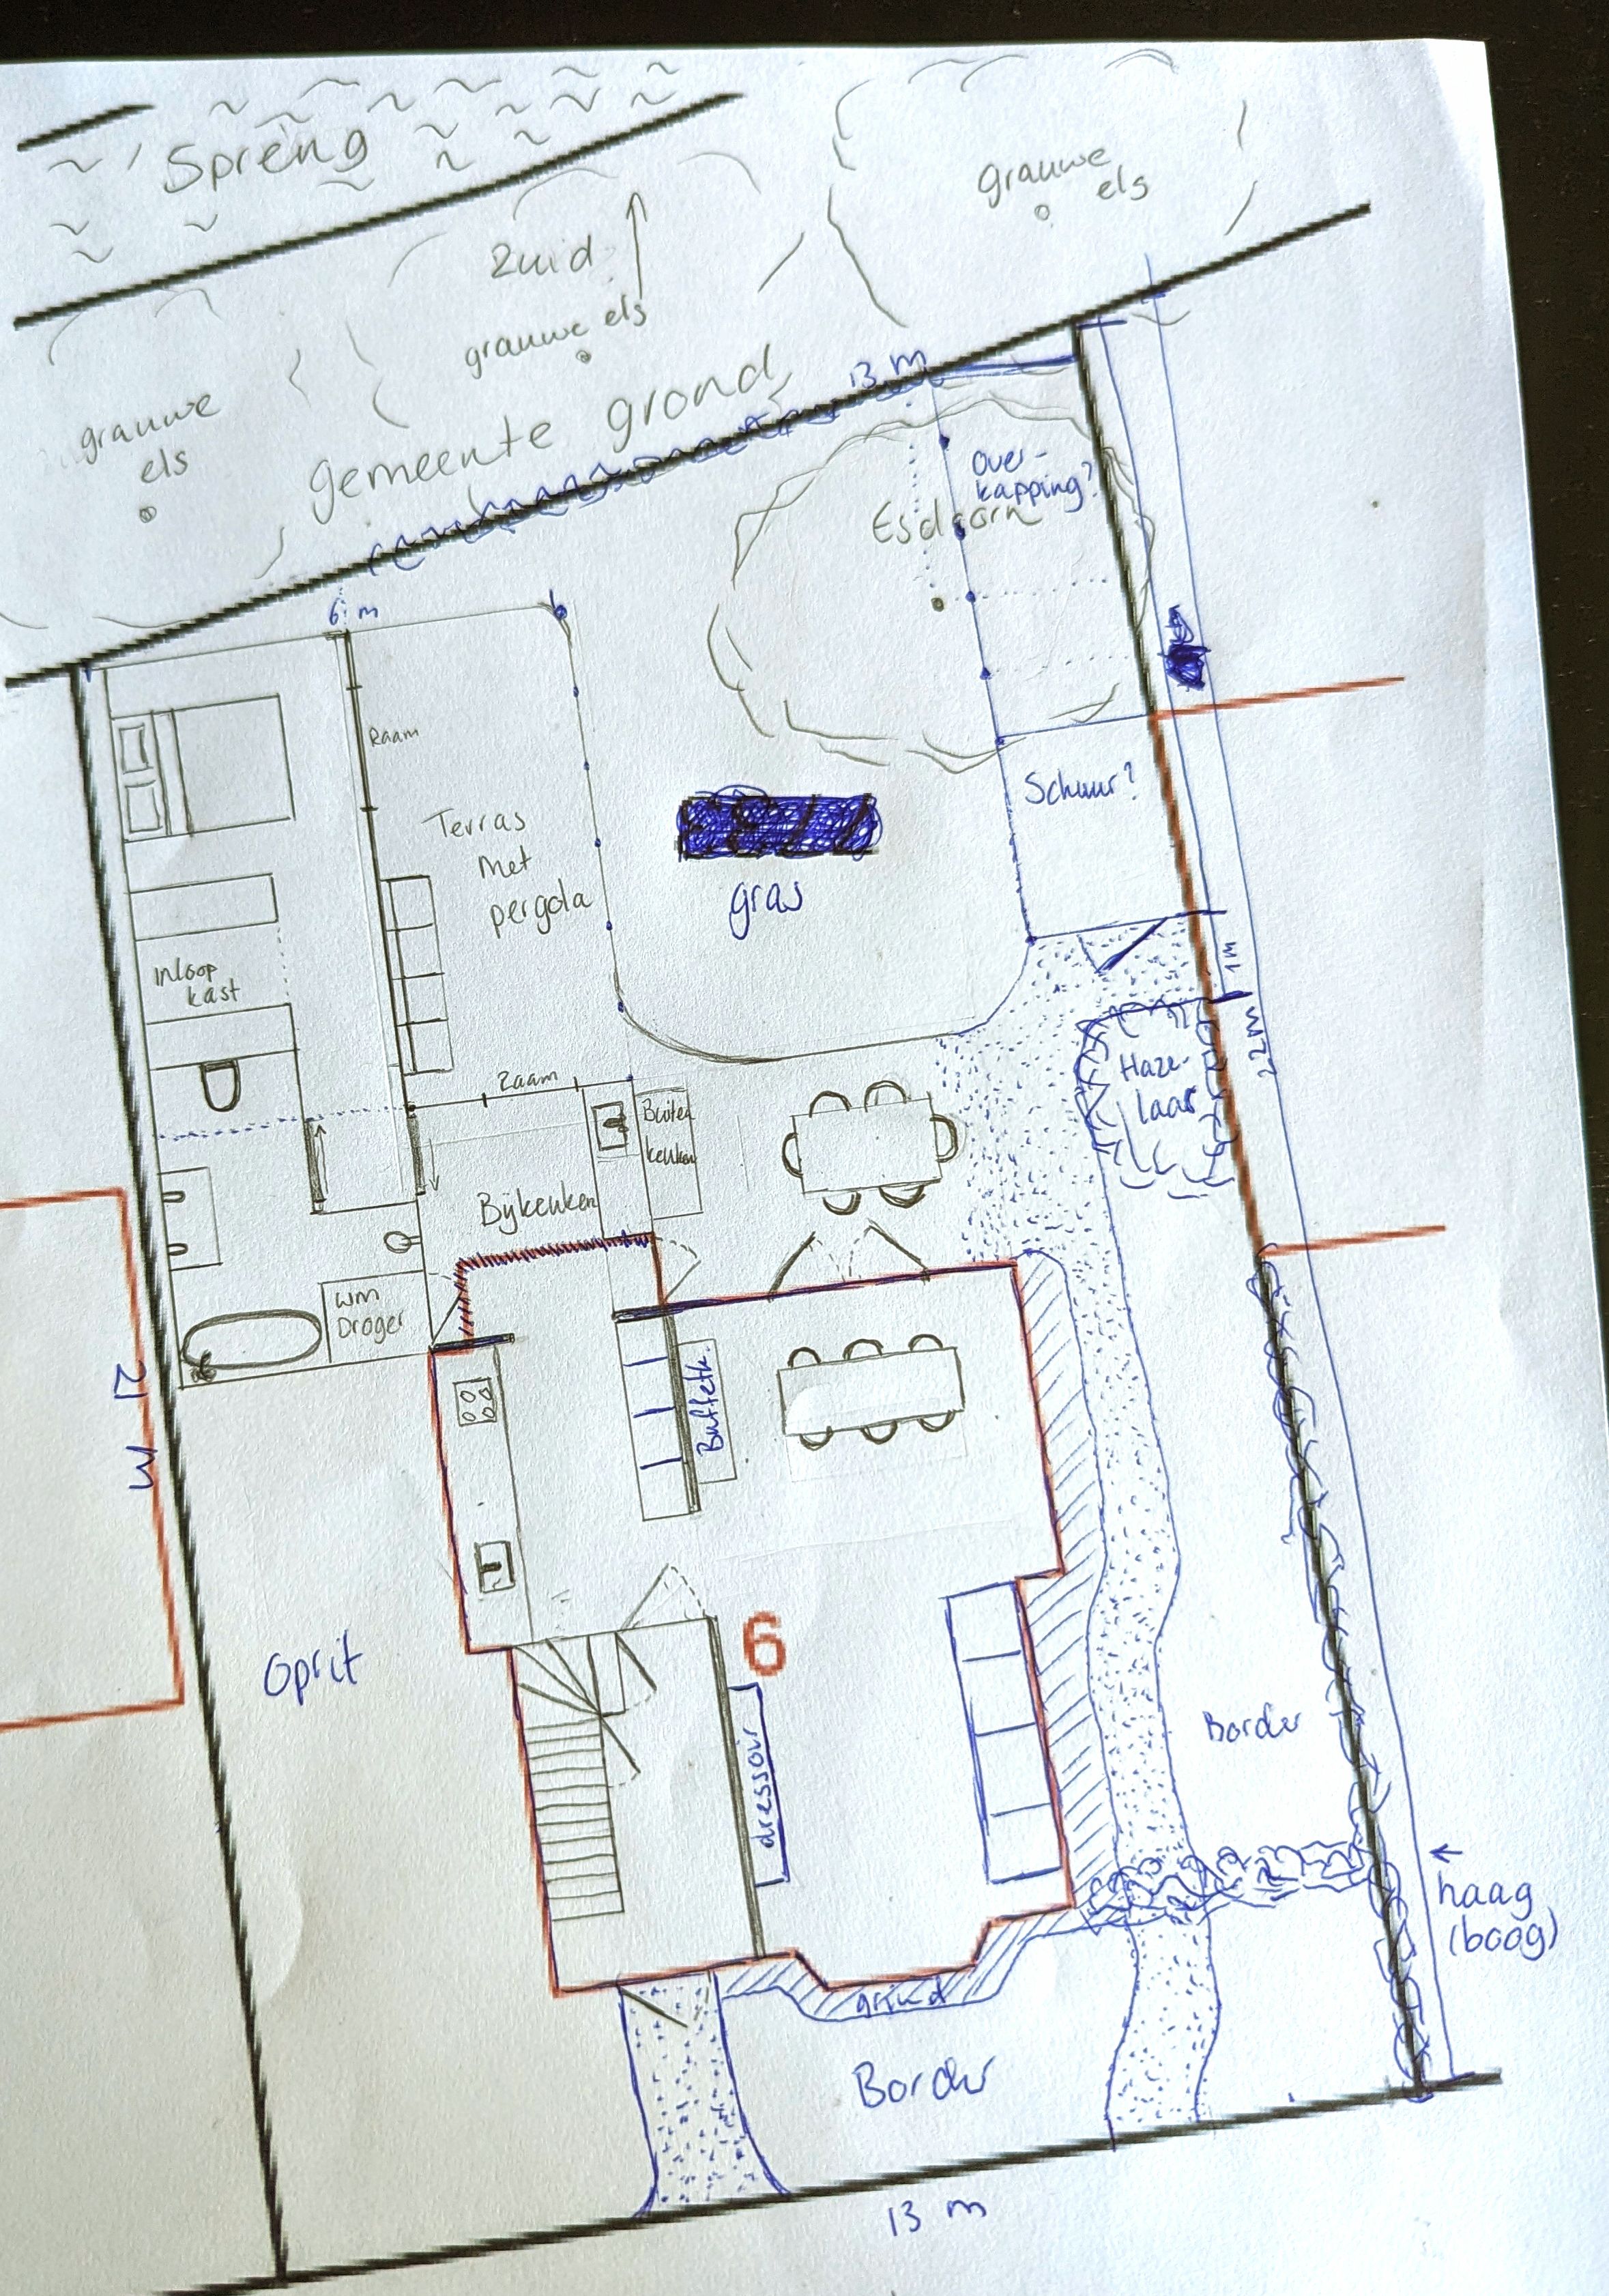 Spreng
grauwe
els
Zuid
grauwe els
grauwe
els
gemeente grond
13 m
Over-
kapping?
Esdoorn
6 m
Raam
Terras
Met
pergola
Schuur?
gras
Inloop
kast
1 m
22 m
Haze-
laar
Raam
Buiten
keuken
Bijkeuken
WM
Droger
21 m
Buffetk.
6
Oprit
dressoir
Border
haag
(boog)
grind
Border
13 m